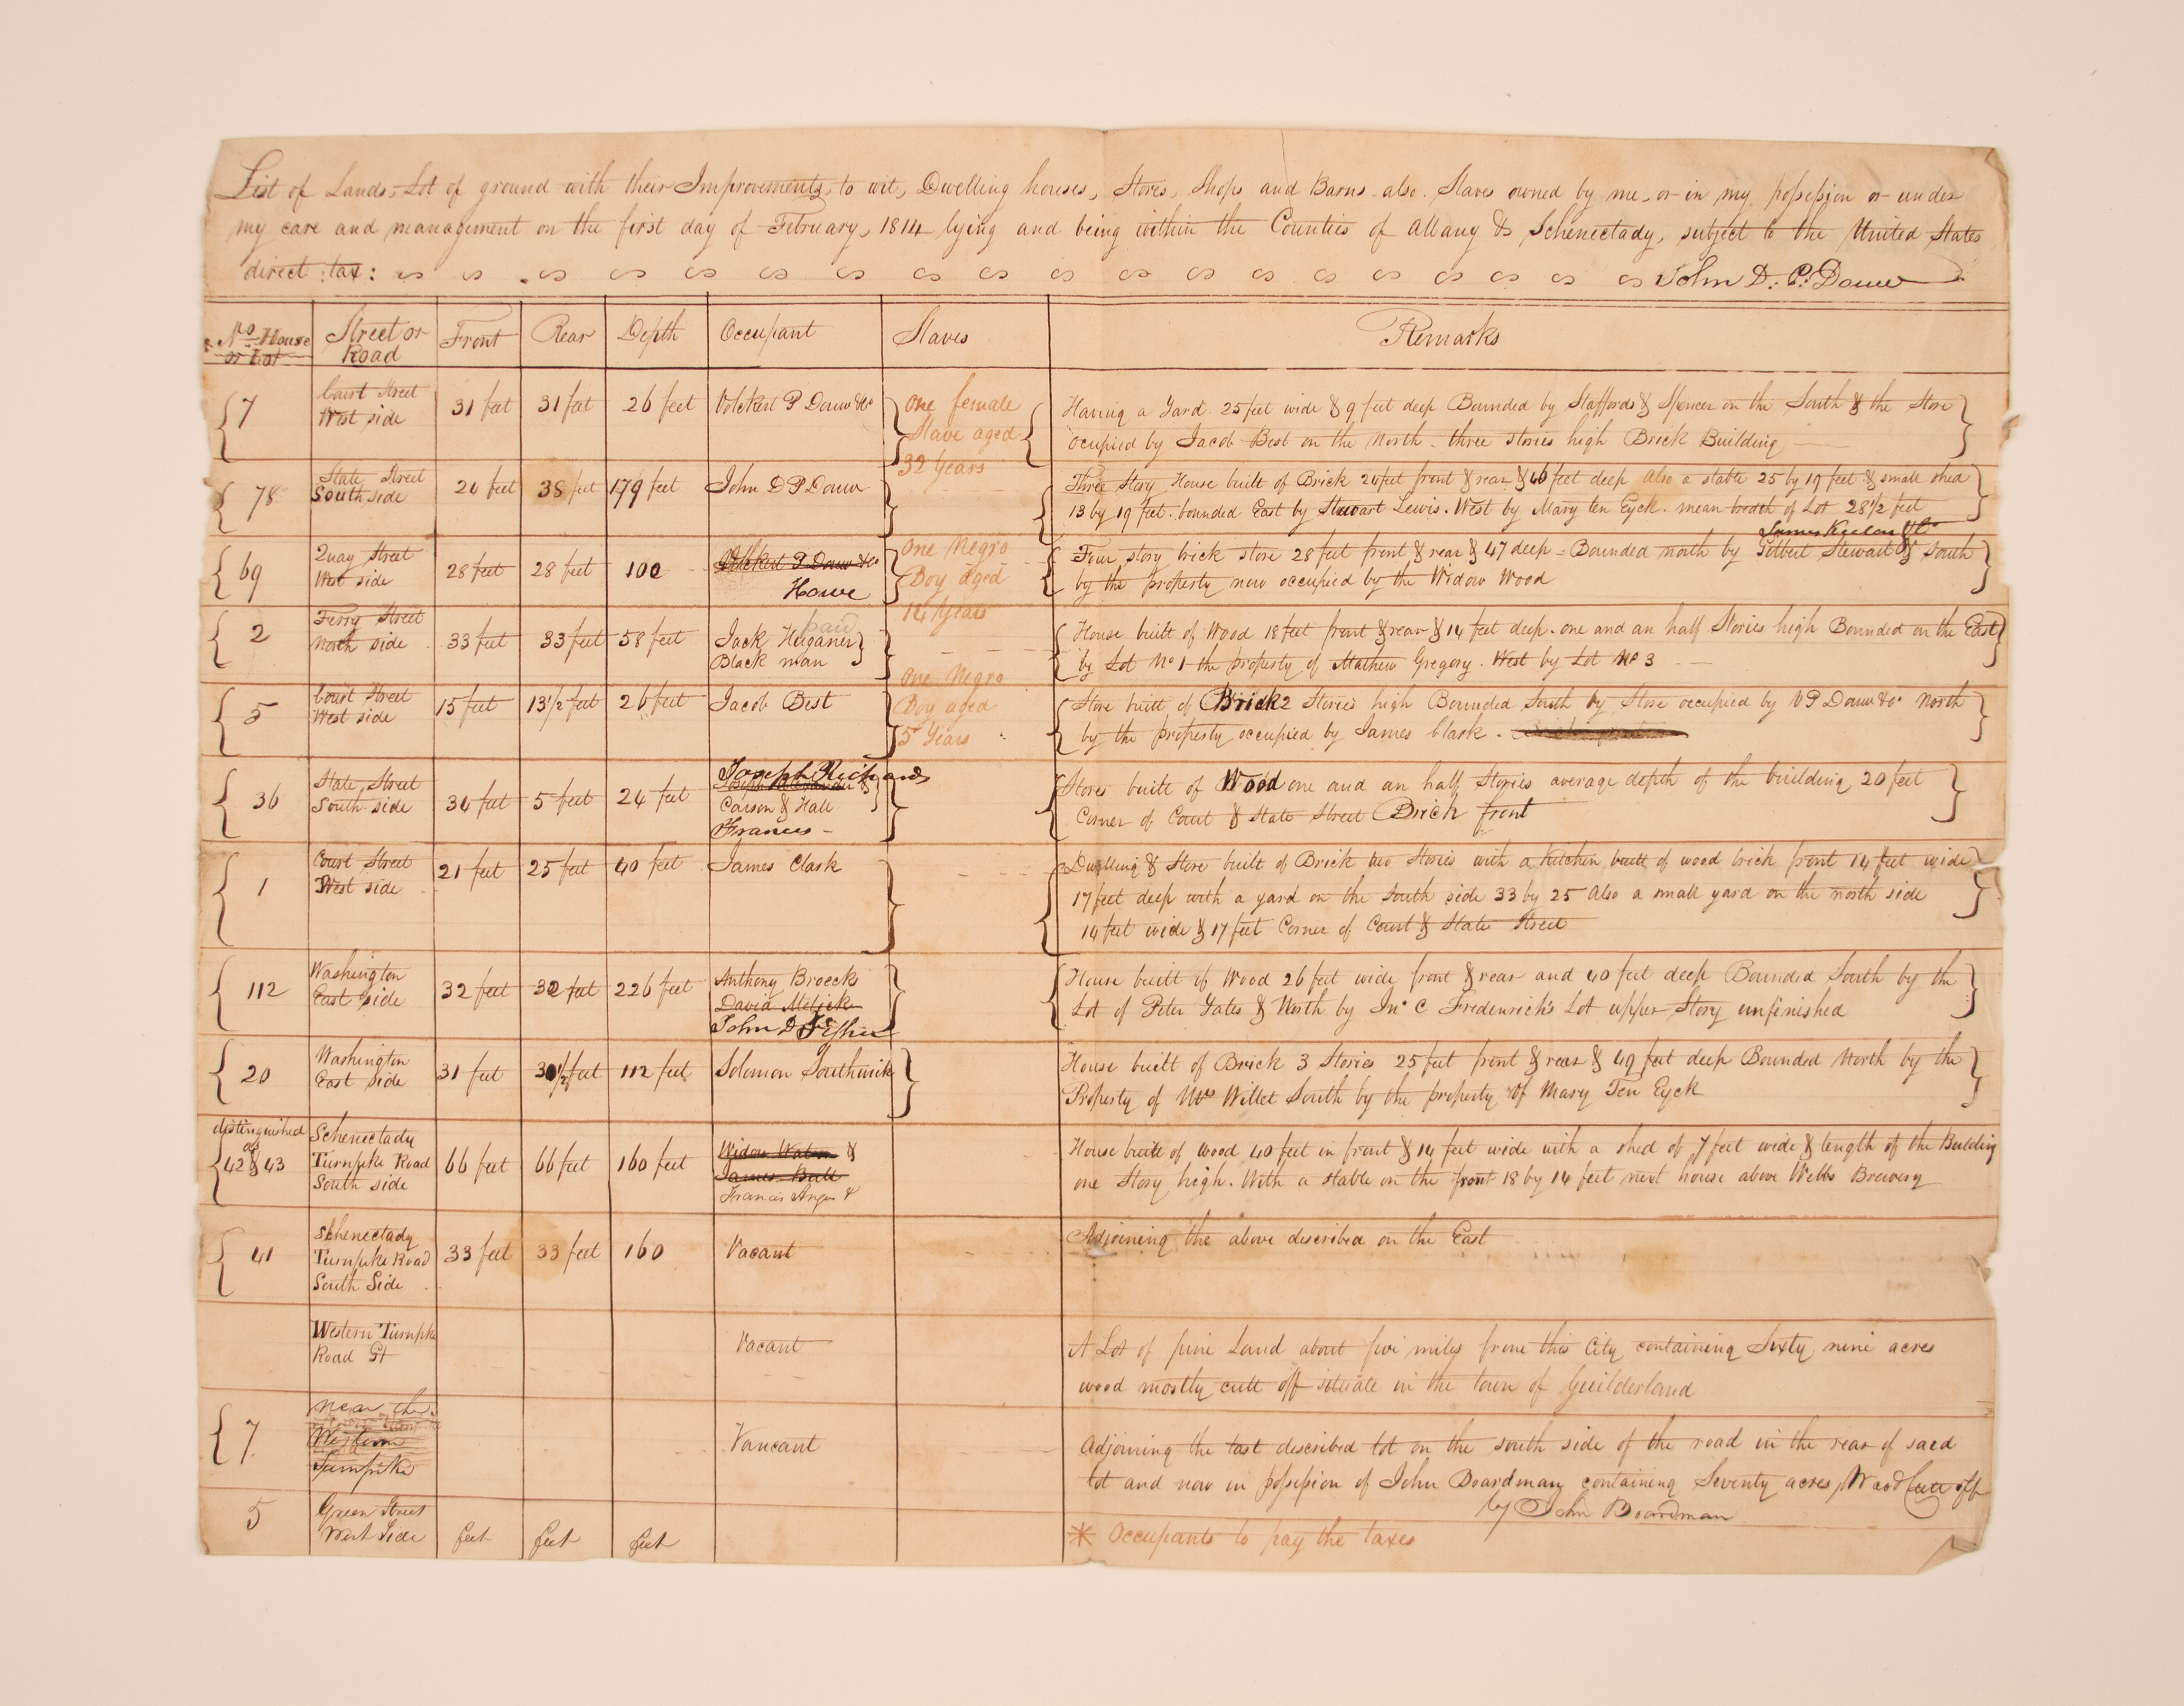 List of Lands, Lot of ground with their Improvements, to wit, Dwelling houses, Stores, Shops and Barns also Slaves owned by me, or in my possession or under
my care and management on the first day of February, 1814 lying and being within the Counties of Albany & Schenectady, subject to the United States
direct tax: John D. P. Douw
No House or Lot
Street or Road
Front
Rear
Depth
Occupant
Slaves
Remarks
7
Court Street
West side
31 feet
31 feet
26 feet
Volckert P Douw & Co
One female
Slave aged
32 Years
Having a Yard 25 feet wide & 9 feet deep Bounded by Staffords & Spencer on the South & the Store
ocupied by Jacob Best on the North three stories high Brick Building
78
State Street
South side
38 feet
179 feet
John D P Douw
Three Story House built of Brick feet front & rear & 46 feet deep also a stable 25 by 19 feet & small shed
13 by 19 feet bounded East by Stewart Lewis. West by Mary ten Eyck. mean bredth of Lot 28 1/2 feet
69
Quay Street
West side
28 feet
28 feet
100
Volckert P Douw & Co
Howe
One Negro
Boy aged
14 Years
James & Co
Four story brick store 28 feet front & rear & 47 deep = Bounded north by Gilbert Stewart & South
by the property now occupied by the Widow Wood
2
Ferry Street
North side
33 feet
33 feet
58 feet
paid
Jack
Black man
House built of Wood 18 feet front & rear & 14 feet deep. one and an half Stories high Bounded on the East
by Lot No 1 the property of Mathew Gregory. West by Lot No 3
5
Court Street
West side
15 feet
13 1/2 feet
26 feet
Jacob Best
One Negro
Boy aged
5 Years
Store built of Brick 2 Stories high Bounded South by Store occupied by V P Douw & Co North
by the property occupied by James Clark.
36
State Street
South side
5 feet
24 feet
Joseph Richards
Carson & Hall
Francis
Stores built of Wood one and an half Stories average depth of the building 20 feet
Corner of Court & State Street Brick front
1
Court Street
West side
21 feet
25 feet
40 feet
James Clark
Dwelling & Store built of Brick two Stories with a Kitchen built of wood brick front 14 feet wide
17 feet deep with a yard on the South side 33 by 25 Also a small yard on the north side
14 feet wide & 17 feet Corner of Court & State Street
112
Washington
East side
32 feet
32 feet
226 feet
Anthony Broecks
David
John D
House built of Wood 26 feet wide front & rear and 40 feet deep Bounded South by the
Lot of Peter Yates & North by Jno C Frederick's Lot upper Story unfinished
20
Washington
East side
31 feet
30 1/2 feet
112 feet
Solomon Southwick
House built of Brick 3 Stories 25 feet front & rear & 49 feet deep Bounded North by the
Property of Mrs Willet South by the property of Mary Ten Eyck
distinguished
as
42 & 43
Schenectady
Turnpike Road
South side
66 feet
66 feet
160 feet
Widow &
James Bull
Francis Angus &
House built of wood 40 feet in front & 14 feet wide with a shed of 7 feet wide & length of the Building
one Story high. With a stable on the front 18 by 14 feet next house above Webbs Brewery
41
Schenectady
Turnpike Road
South Side
33 feet
33 feet
160
Vacant
Adjoining the above described on the East
Western Turnpike
Road St
Vacant
A Lot of pine Land about five miles from this City containing Sixty nine acres
wood mostly cutt off situate in the town of Guilderland
7
near the
Western
Turnpike
Vancant
Adjoining the last described lot on the south side of the road in the rear of said
lot and now in possession of John Boardman containing Seventy acres, Wood Cutt off
by John Boardman
5
Green Street
West Side
feet
feet
feet
* Occupants to pay the taxes